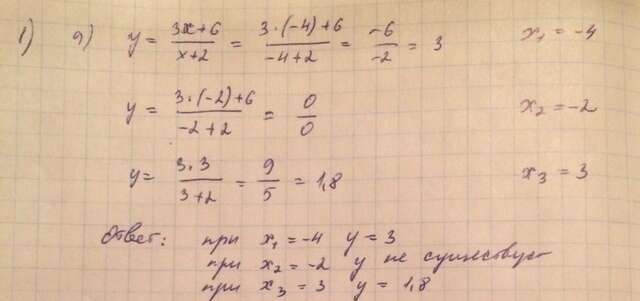 1) а) y = (3x+6)/(x+2) = (3·(-4)+6)/(-4+2) = -6/-2 = 3 x₁ = -4
y = (3·(-2)+6)/(-2+2) = 0/0 x₂ = -2
y = (3·3)/(3+2) = 9/5 = 1,8 x₃ = 3
Ответ: при x₁ = -4 y = 3
при x₂ = -2 y не существует
при x₃ = 3 y = 1,8